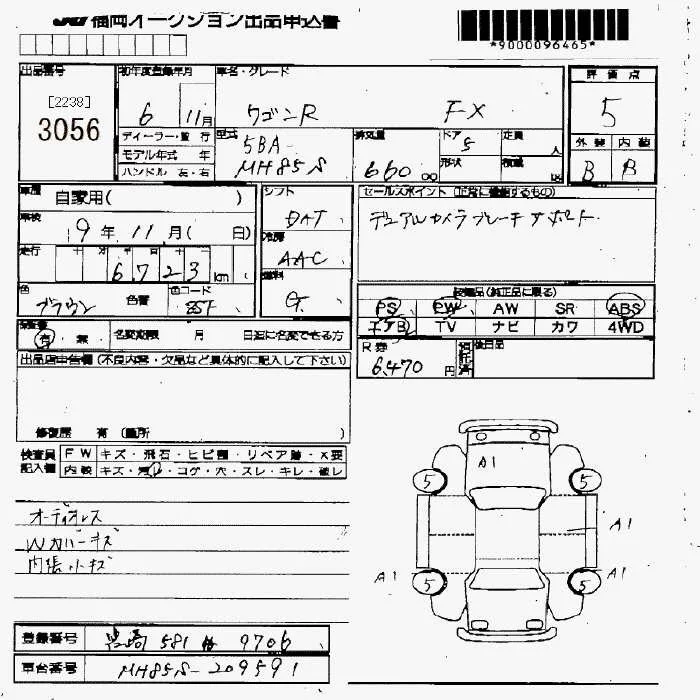 福岡オークション出品申込書
*9000096465*
出品番号 初年度登録年月 車名・グレード 評価点
[2238]
3056
6 11月 ワゴンR FX 5
ディーラー・並行 型式 排気量 ドア 定員 外装 内装
モデル年式 年 5BA- 5 人
ハンドル 左・右 MH85S 660 cc 形状 積載 B B
車歴 自家用( ) シフト セールスポイント (正常に機能するもの)
車検 9年 11月( 日) DAT デュアルカメラブレーキサポート
冷房
走行 6723km AAC
燃料
色 ブラウン 色替 色コード ZST G 装備品(純正品に限る)
PS PW AW SR ABS
エアB TV ナビ カワ 4WD
有・無 名変期限 月 日迄に名変できる方
R券 後日品
6,470円
出品店申告欄(不良内容・欠品など具体的に記入して下さい)
修復歴 有 (箇所 )
検査員 FW キズ・飛石・ヒビ割・リペア跡・X要
記入欄 内装 キズ・汚レ・コゲ・穴・スレ・キレ・破レ
A1
5 5
オーディオレス
Wカバーキズ
A1
内張小キズ
A1 5 5 A1
登録番号 581 9706
車台番号 MH85S-209591